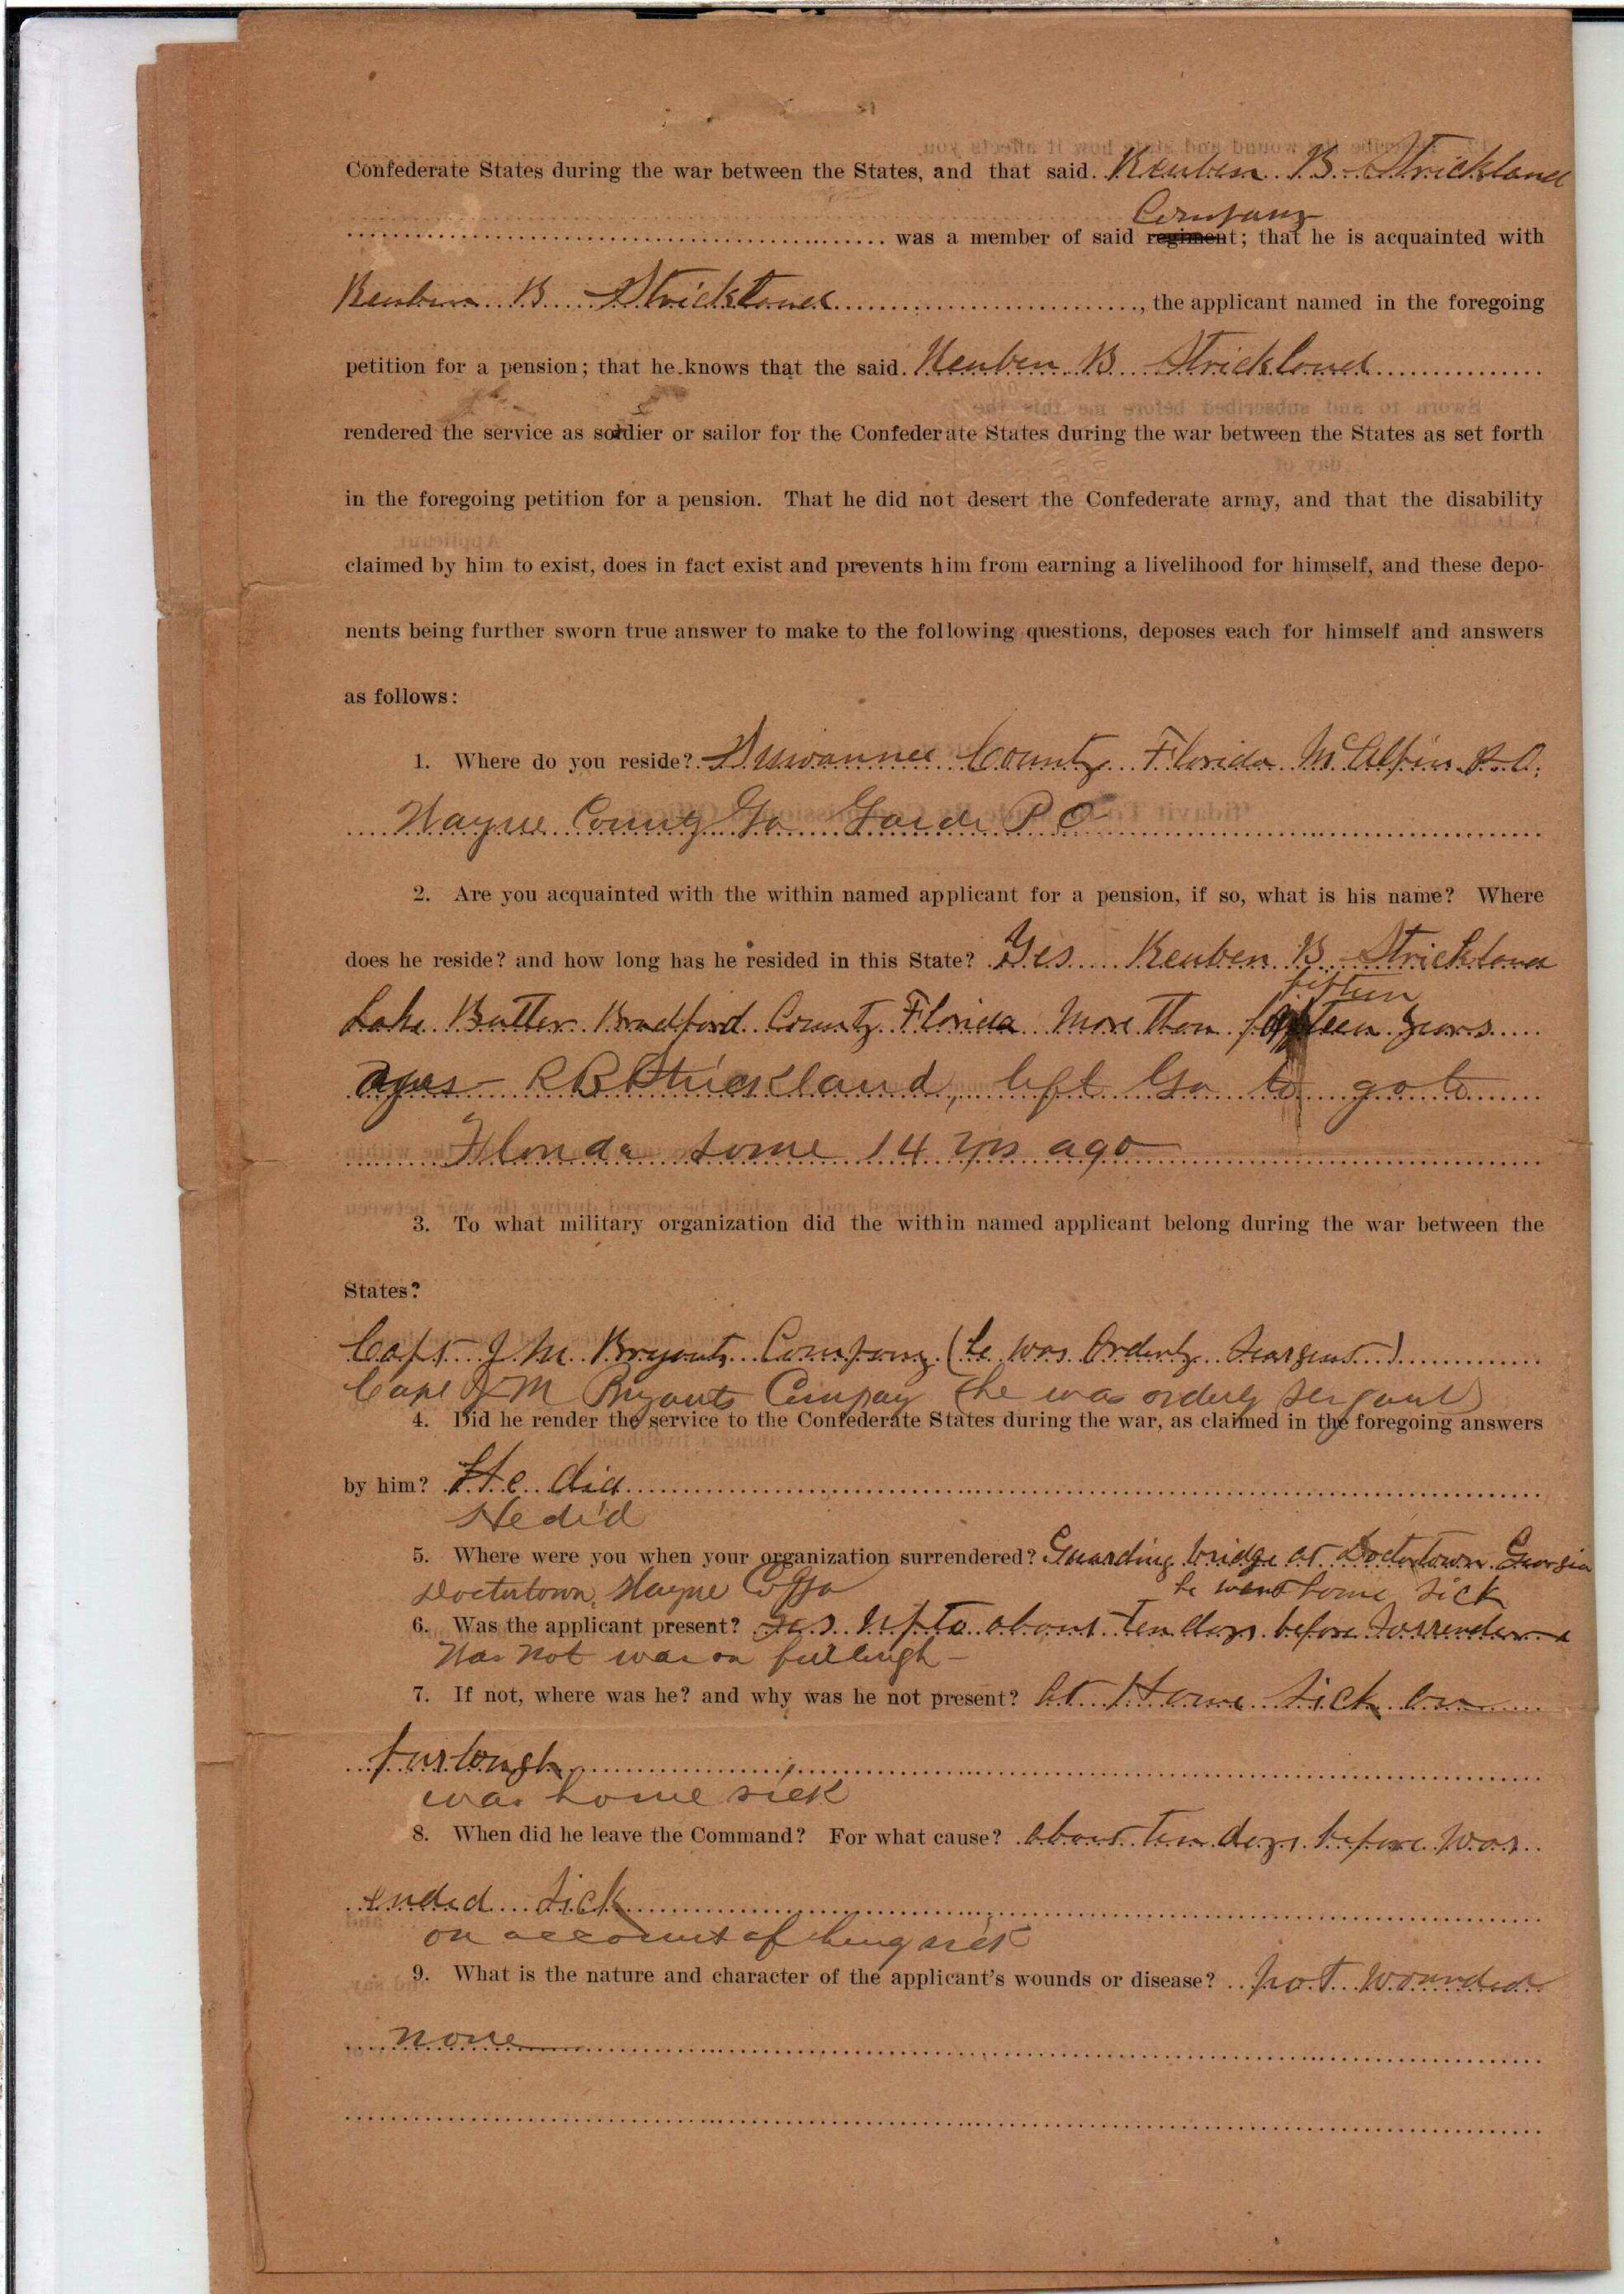 Confederate States during the war between the States, and that said. Reuben B. Strickland
Company
was a member of said regiment; that he is acquainted with
Reuben B. Strickland, the applicant named in the foregoing
petition for a pension; that he knows that the said. Reuben B Strickland
rendered the service as soldier or sailor for the Confederate States during the war between the States as set forth
in the foregoing petition for a pension. That he did not desert the Confederate army, and that the disability
claimed by him to exist, does in fact exist and prevents him from earning a livelihood for himself, and these depo-
nents being further sworn true answer to make to the following questions, deposes each for himself and answers
as follows:
1. Where do you reside? Suwannee County Florida McAlpin P.O.
Wayne County Ga Gardi P O
2. Are you acquainted with the within named applicant for a pension, if so, what is his name? Where
does he reside? and how long has he resided in this State? Yes Reuben B Strickland
fifteen
Lake Butler Bradford County Florida More Than years
R B Strickland, left Ga to go to
Florida some 14 yrs ago
3. To what military organization did the within named applicant belong during the war between the
States?
Capt J. M. Bryants Company (he was Orderly Seargent)
Capt J M Bryants Compay (he was orderly sergant)
4. Did he render the service to the Confederate States during the war, as claimed in the foregoing answers
by him? He did
He did
5. Where were you when your organization surrendered? Guarding bridge at Doctortown Georgia
Doctortown, Wayne Co Ga
he went home sick
6. Was the applicant present? yes up to about ten days before surrender
Was not was on fullough
7. If not, where was he? and why was he not present? At Home sick on
furlough
was home sick
8. When did he leave the Command? For what cause? about ten days before War
ended sick
on account of being sick
9. What is the nature and character of the applicant's wounds or disease? not wounded
none